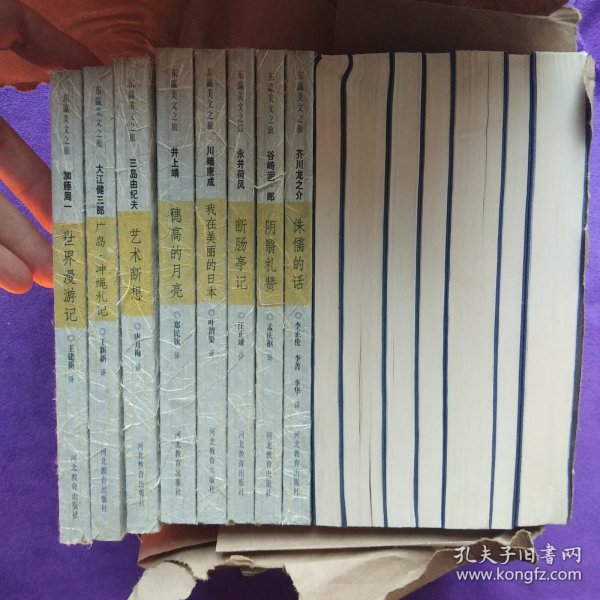 东瀛美文之旅
加藤周一
世界漫游记
王建新 译
河北教育出版社
东瀛美文之旅
大江健三郎
广岛·冲绳札记
王新新 译
河北教育出版社
东瀛美文之旅
三岛由纪夫
艺术断想
唐月梅 译
河北教育出版社
东瀛美文之旅
井上靖
穗高的月亮
郑民钦 译
河北教育出版社
东瀛美文之旅
川端康成
我在美丽的日本
叶渭渠 译
河北教育出版社
东瀛美文之旅
永井荷风
断肠亭记
汪正球 译
河北教育出版社
东瀛美文之旅
谷崎润一郎
阴翳礼赞
孟庆枢 译
河北教育出版社
东瀛美文之旅
芥川龙之介
侏儒的话
李正伦 李菁 李华 译
河北教育出版社
孔夫子旧书网
www.kongfz.com